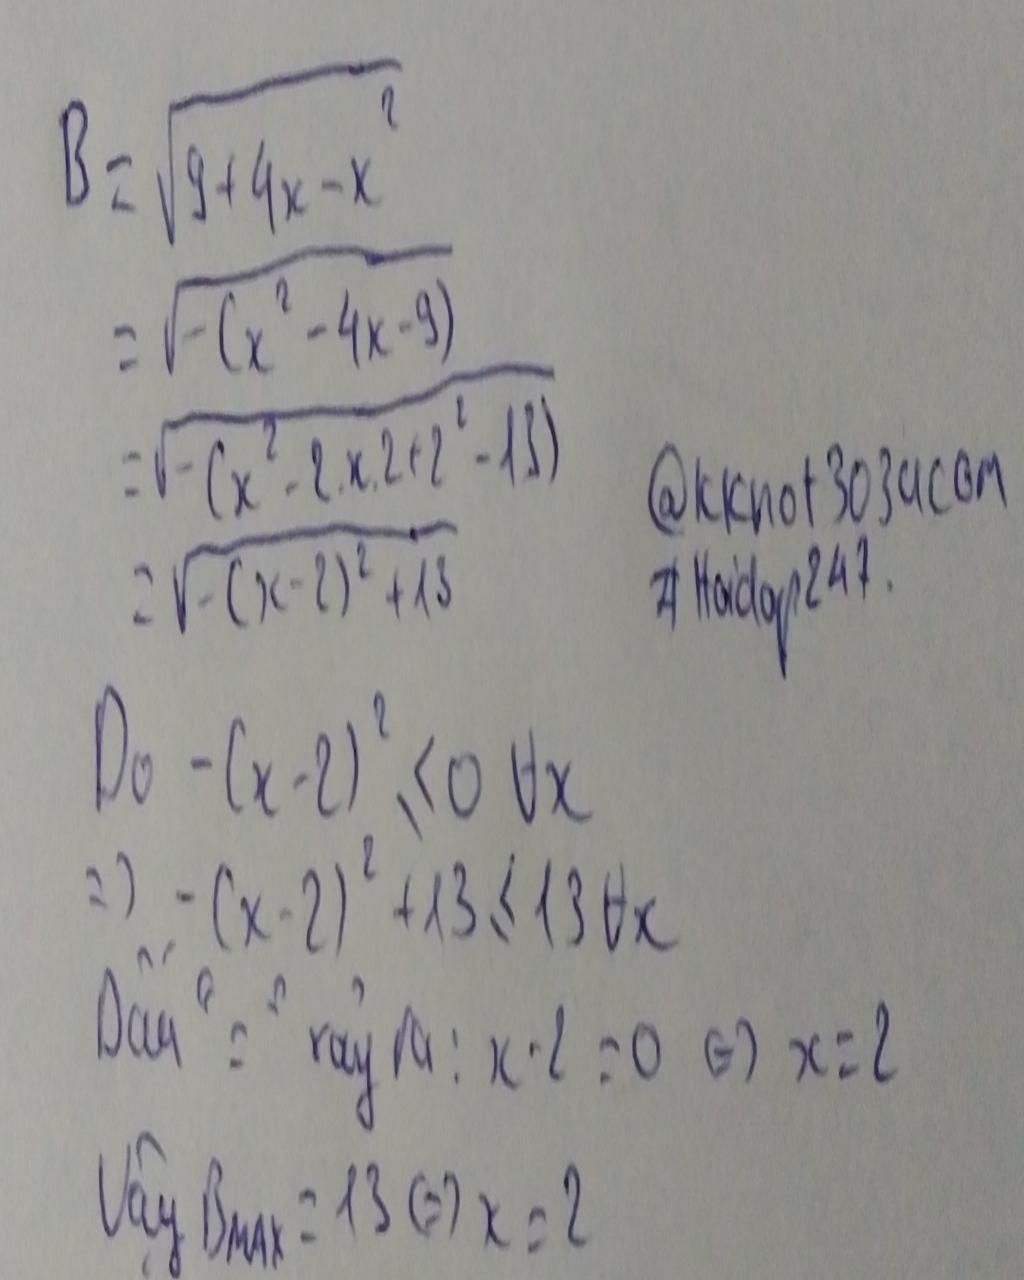 B = √(9+4x-x²)
= √(-(x²-4x-9))
= √(-(x²-2.x.2+2²-13))
= √(-(x-2)²+13)
@kknot3034com
#Hoidap247.
Do -(x-2)² ≤ 0 ∀x
=> -(x-2)²+13 ≤ 13 ∀x
Dấu "=" xảy ra: x-2=0 <=> x=2
Vậy BMAX = 13 <=> x=2